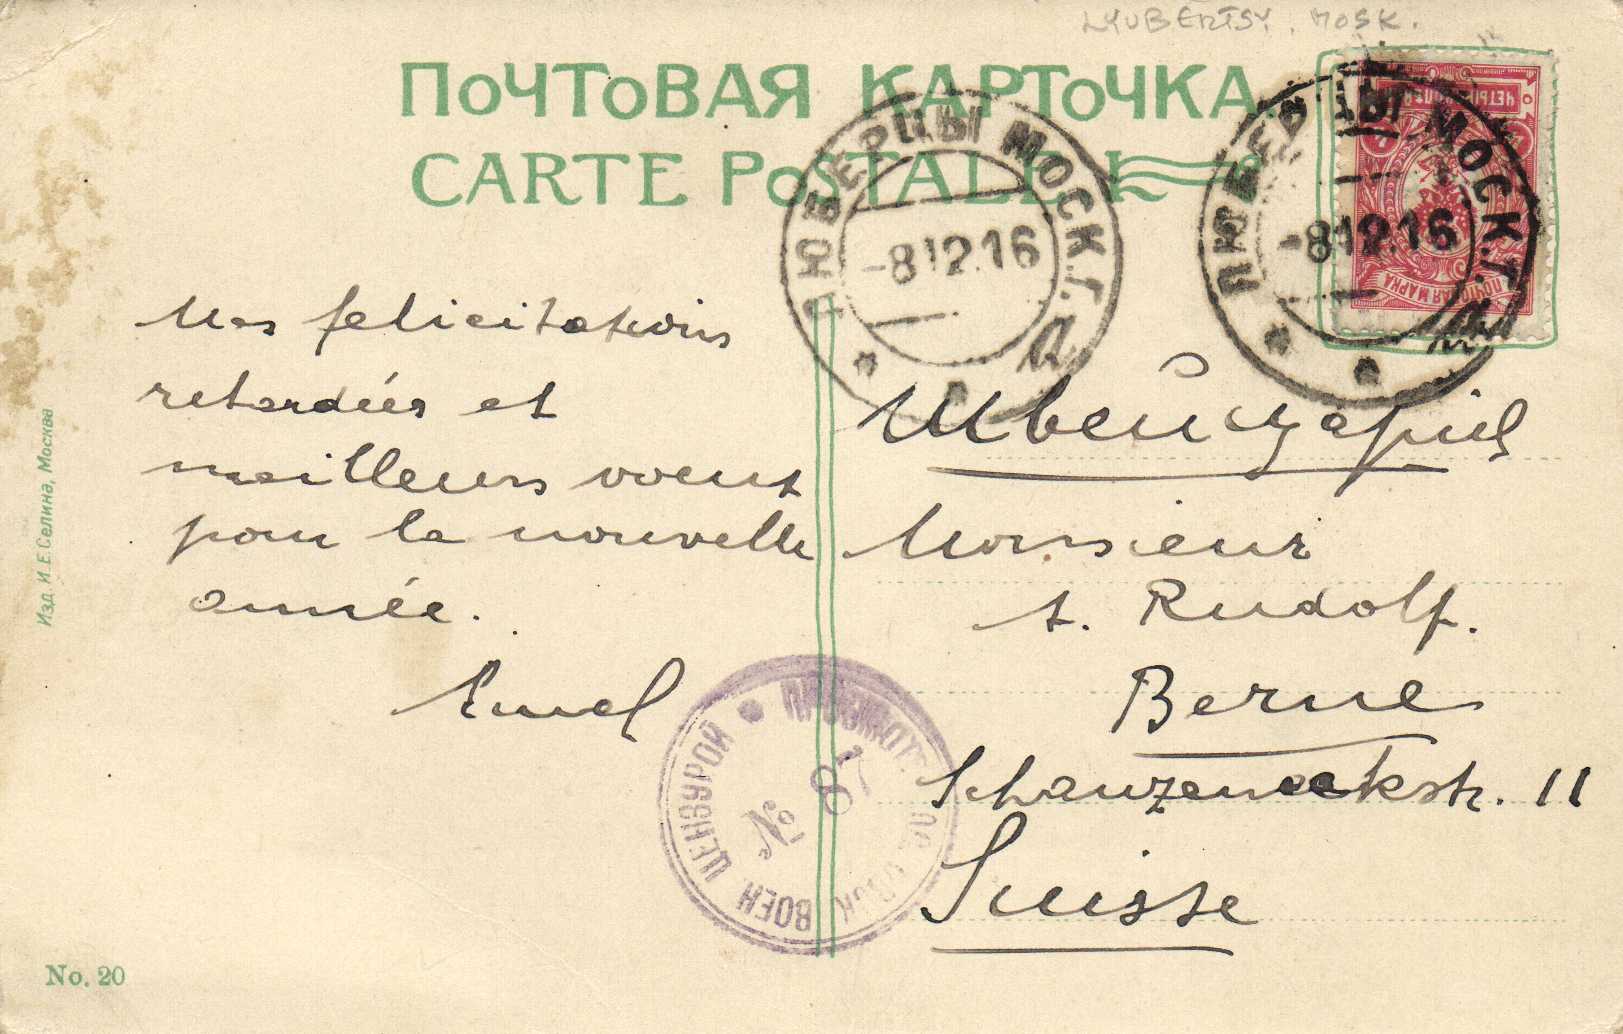 LYUBERTSY, MOSK.
ПОЧТОВАЯ КАРТОЧКА.
CARTE POSTALE
ЛЮБЕРЦЫ МОСК.Г.
-8 12.16
а
ЛЮБЕРЦЫ МОСК.Г.
-8 12 16
ПОЧТОВАЯ МАРКА
Mes felicitations
retardées et
meilleurs voeux
pour la nouvelle
année.
Emel
Швейцарія
Monsieur
A. Rudolf.
Berne
Schanzeneckstr. 11
Suisse
ПРОСМОТР. МОСК. ВОЕН. ЦЕНЗУРОЙ
№ 87
Изд. И. Е. Селина, Москва
No. 20